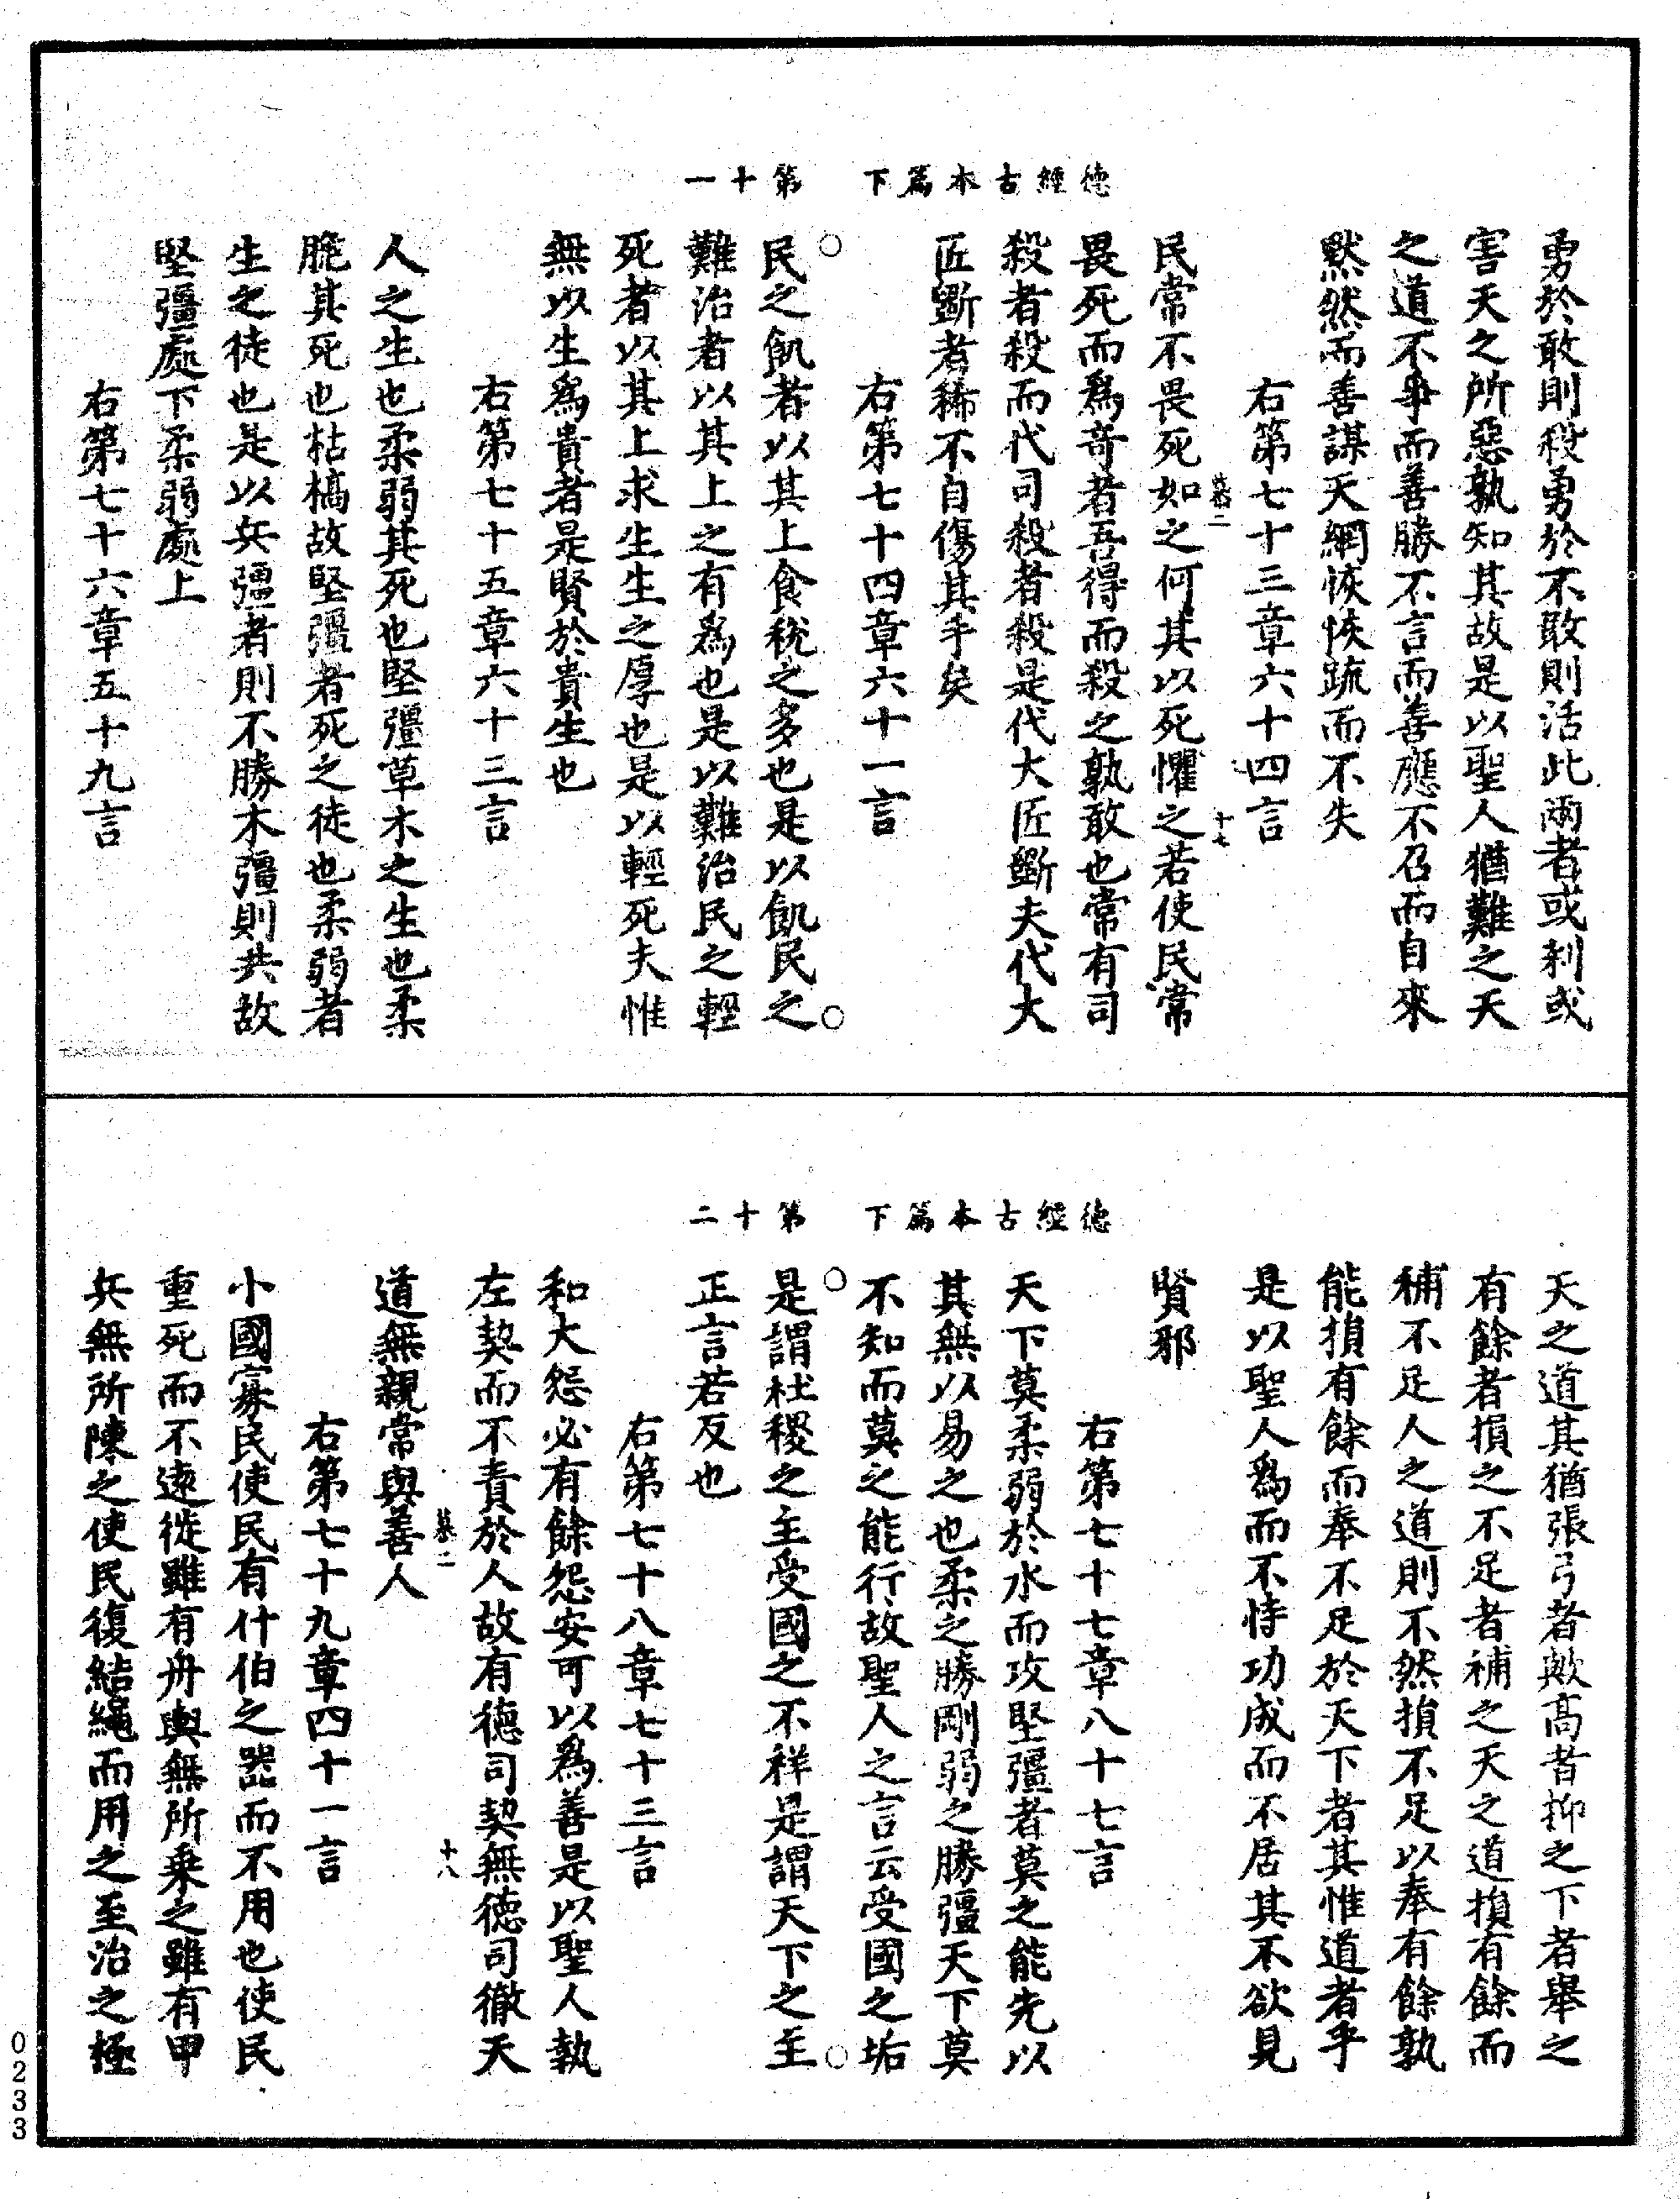 德經古本篇下　第十一
勇於敢則殺勇於不敢則活此兩者或利或
害天之所惡孰知其故是以聖人猶難之天
之道不爭而善勝不言而善應不召而自來
默然而善謀天網恢恢疏而不失
右第七十三章六十四言
慕二　十七
民常不畏死如之何其以死懼之若使民常
畏死而爲奇者吾得而殺之孰敢也常有司
殺者殺而代司殺者殺是代大匠斲夫代大
匠斲者稀不自傷其手矣
右第七十四章六十一言
民之飢者以其上食稅之多也是以飢民之
難治者以其上之有爲也是以難治民之輕
死者以其上求生生之厚也是以輕死夫惟
無以生爲貴者是賢於貴生也
右第七十五章六十三言
人之生也柔弱其死也堅彊草木之生也柔
脆其死也枯槁故堅彊者死之徒也柔弱者
生之徒也是以兵彊者則不勝木彊則共故
堅彊處下柔弱處上
右第七十六章五十九言
德經古本篇下　第十二
天之道其猶張弓者歟高者抑之下者舉之
有餘者損之不足者補之天之道損有餘而
補不足人之道則不然損不足以奉有餘孰
能損有餘而奉不足於天下者其惟道者乎
是以聖人爲而不恃功成而不居其不欲見
賢邪
右第七十七章八十七言
天下莫柔弱於水而攻堅彊者莫之能先以
其無以易之也柔之勝剛弱之勝彊天下莫
不知而莫之能行故聖人之言云受國之垢
是謂社稷之主受國之不祥是謂天下之主
正言若反也
右第七十八章七十三言
和大怨必有餘怨安可以爲善是以聖人執
左契而不責於人故有德司契無德司徹天
慕二　十八
道無親常與善人
右第七十九章四十一言
小國寡民使民有什伯之器而不用也使民
重死而不遠徙雖有舟輿無所乘之雖有甲
兵無所陳之使民復結繩而用之至治之極
0233